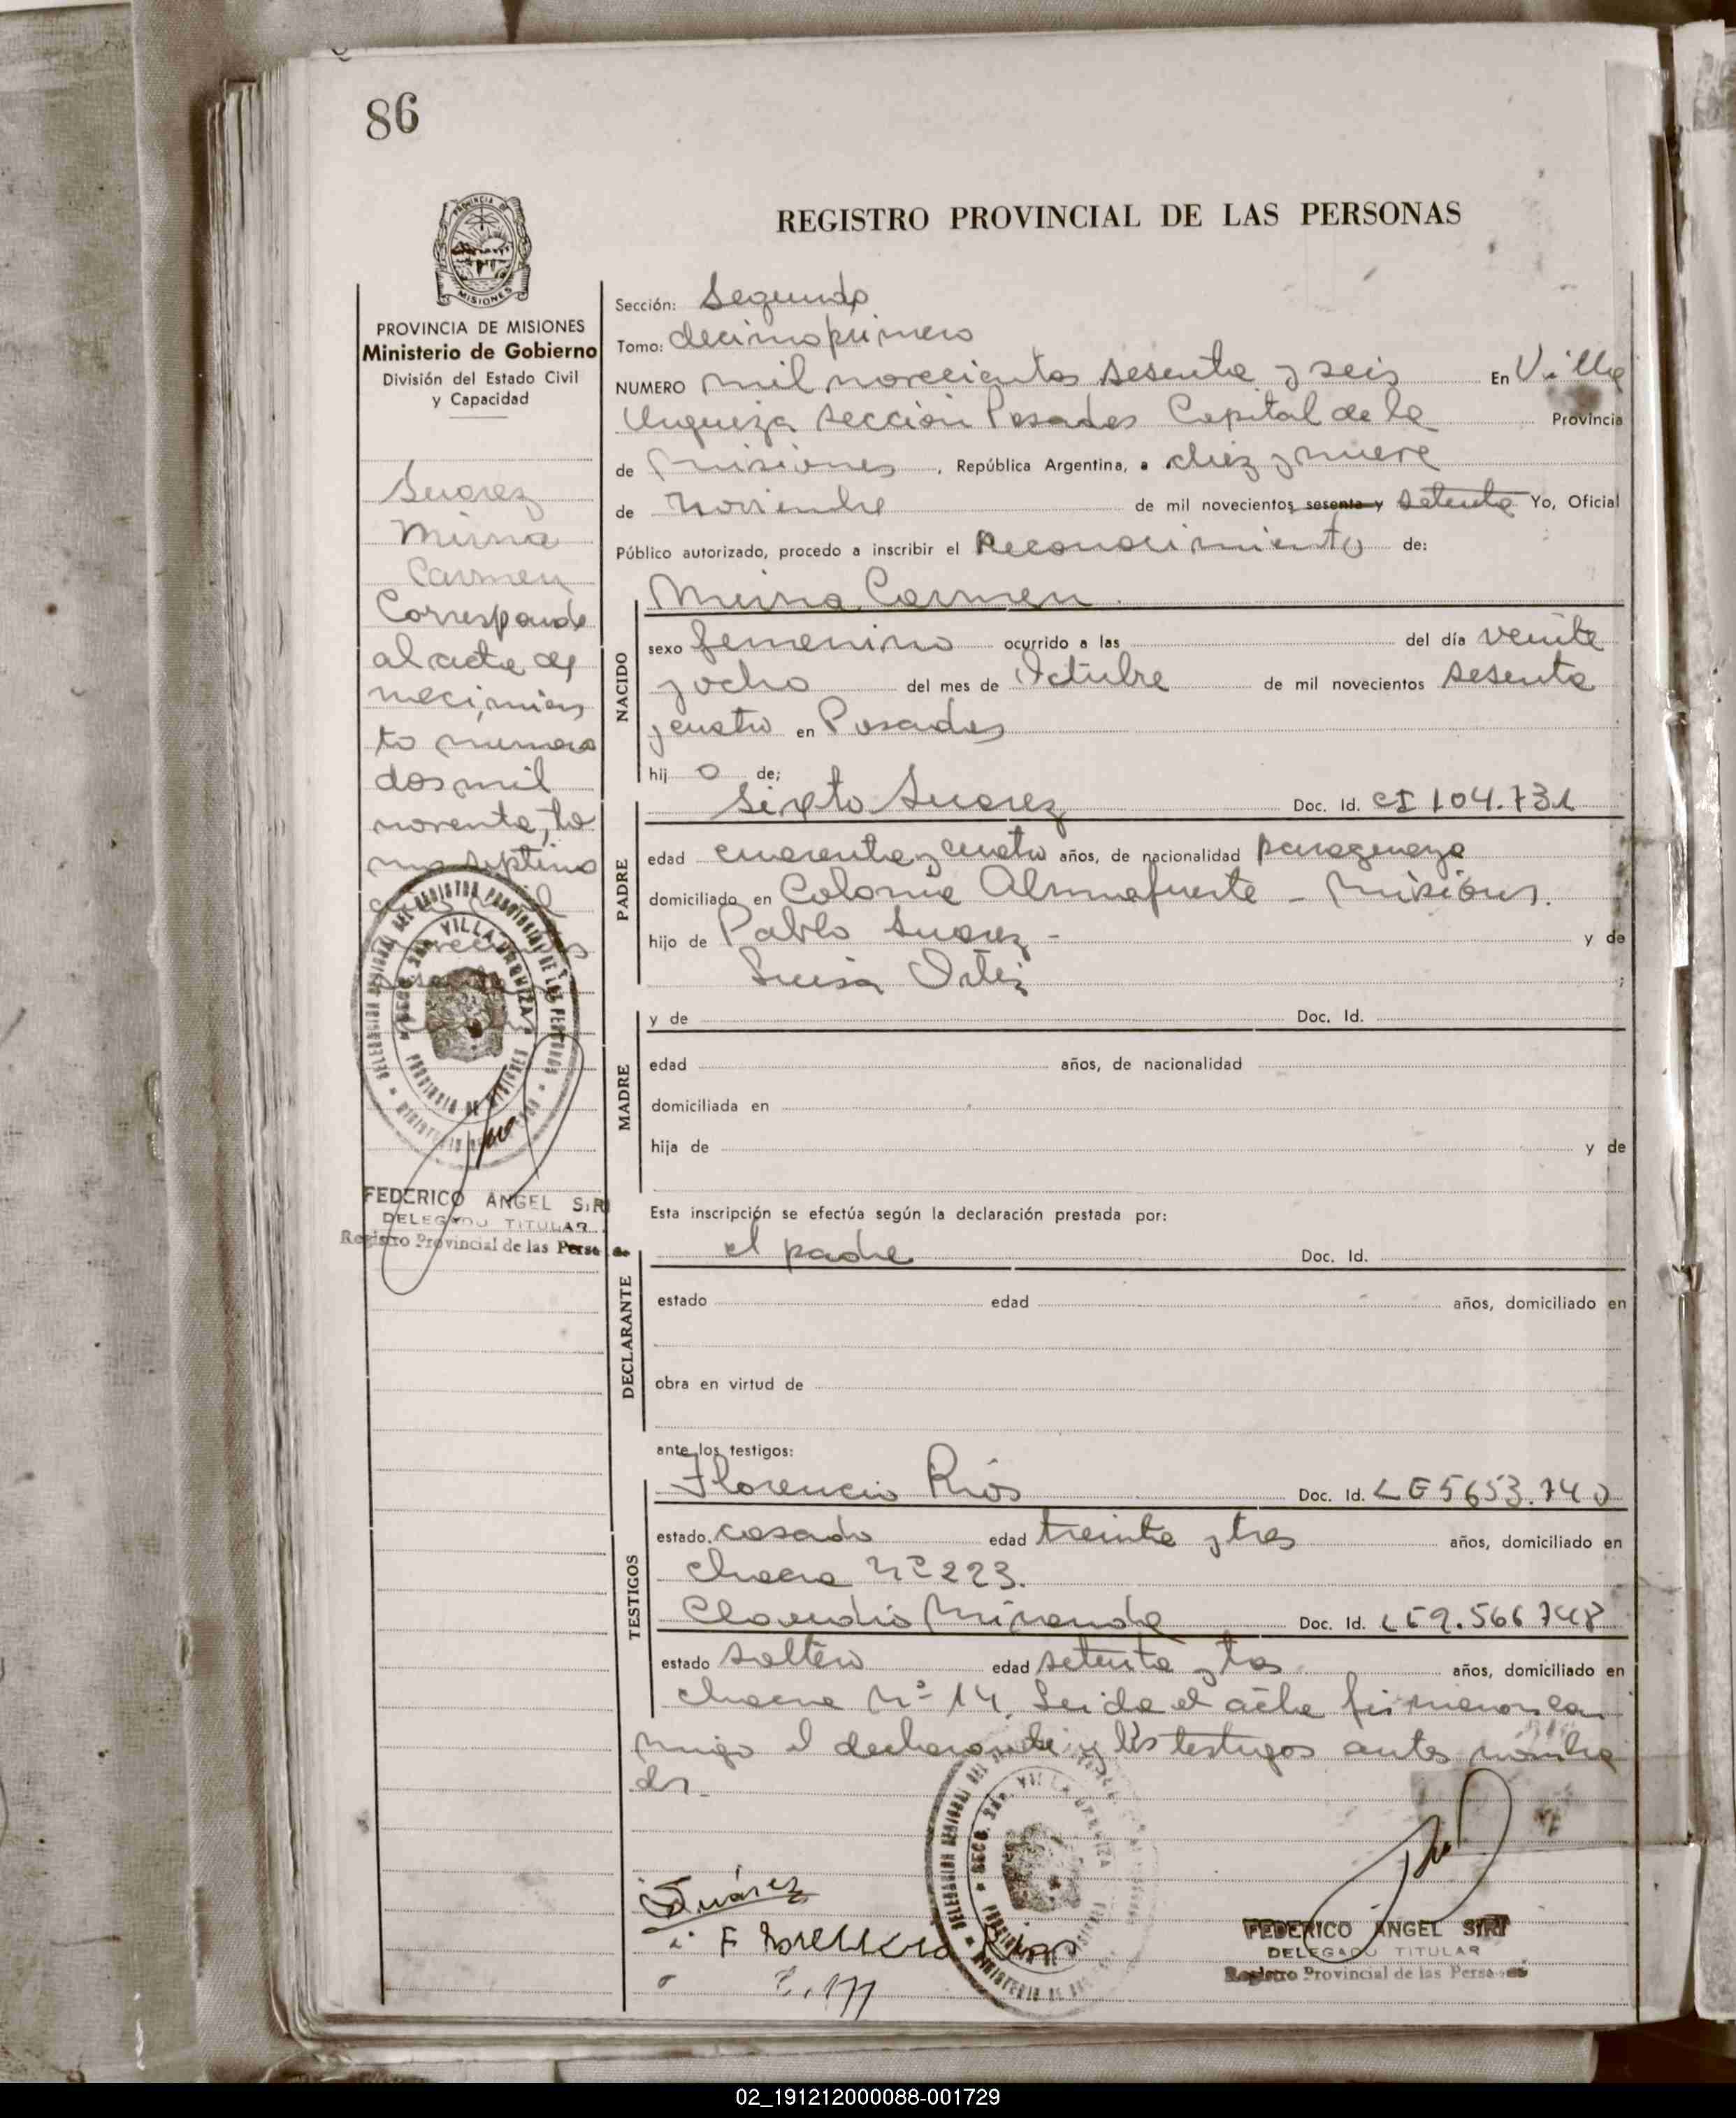 86
PROVINCIA DE
MISIONES
REGISTRO PROVINCIAL DE LAS PERSONAS
PROVINCIA DE MISIONES
Ministerio de Gobierno
División del Estado Civil
y Capacidad
Suarez
Mirna
Carmen
Corresponde
al acta de
nacimien
to numero
dos mil
noventa, to
mo septimo
FEDERICO ANGEL SIRI
DELEGADO TITULAR
Registro Provincial de las Personas
Sección: Segundo
Tomo: decimoprimero
NUMERO mil novecientos sesenta y seis En Villa
Urquiza sección Posadas Capital de la Provincia
de Misiones, República Argentina, a diez y nueve
de Noviembre de mil novecientos sesenta y setenta Yo, Oficial
Público autorizado, procedo a inscribir el Reconocimiento de:
Mirna Carmen.
NACIDO
sexo femenino ocurrido a las del día veinte
y ocho del mes de Octubre de mil novecientos sesenta
y cuatro en Posadas
hij o de;
Sixto Suarez Doc. Id. CI 104.731
PADRE
edad cuarenta y cuatro años, de nacionalidad paraguaya
domiciliado en Colonia Almafuerte - Misiones.
hijo de Pablo Suarez - y de
Luisa Ortiz ;
MADRE
y de Doc. Id.
edad años, de nacionalidad
domiciliada en
hija de y de
Esta inscripción se efectúa según la declaración prestada por:
DECLARANTE
el padre Doc. Id.
estado edad años, domiciliado en
obra en virtud de
ante los testigos:
TESTIGOS
Florencio Rios Doc. Id. LE 5653.740
estado casado edad treinta y tres años, domiciliado en
chacra Nº 223.
Claudio Miranda Doc. Id. LE 9.566748
estado soltero edad setenta y tres años, domiciliado en
chacra Nº 14. Leida el acta firmaron con
migo el declarante y los testigos antes nombra
dos.
SECC. 2DA. VILLA URQUIZA
PROVINCIA DE MISIONES
Suárez
Florencio Rios
FEDERICO ANGEL SIRI
DELEGADO TITULAR
Registro Provincial de las Personas
02_191212000088-001729